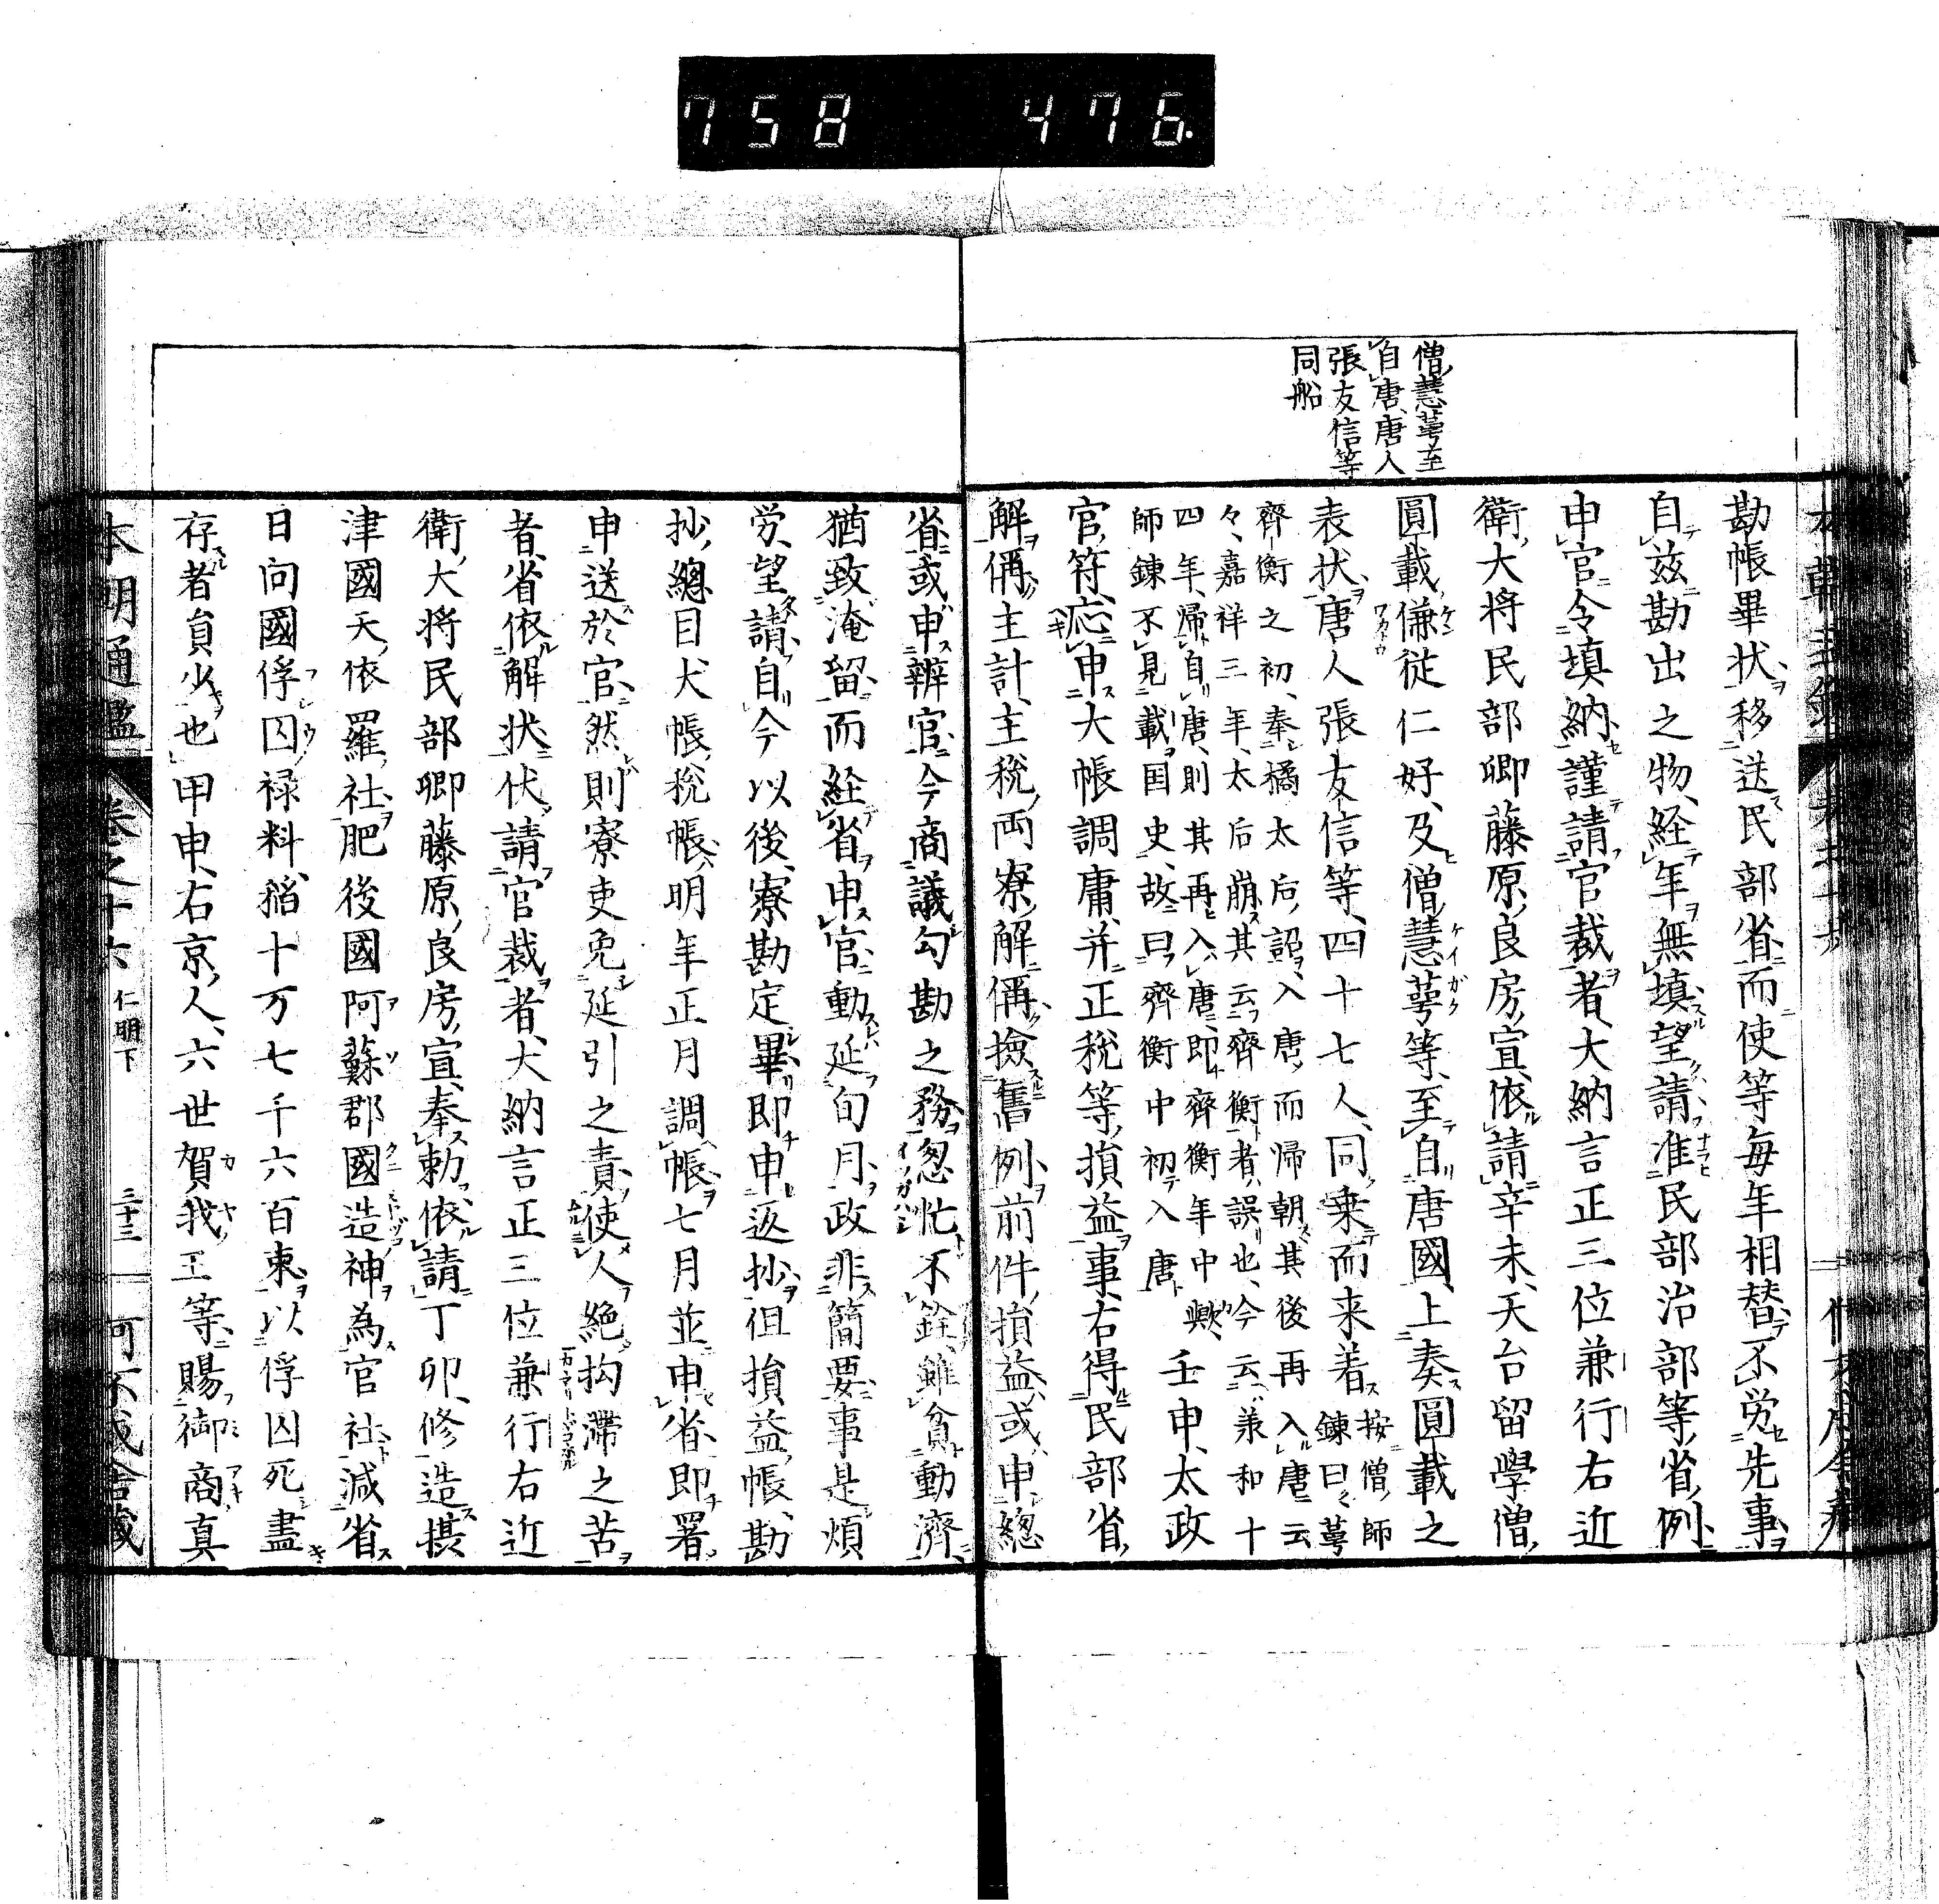 758 476.
僧慧萼至
自唐唐人
張友信等
同船
勘帳畢状移送民部省而使等毎年相替不労先事
自茲勘出之物経年無填望請准民部治部等省例
申官令填納謹請官裁者大納言正三位兼行右近
衛大将民部卿藤原良房宣依請辛未天台留學僧
圓載傔従仁好及僧慧萼等至自唐國上奏圓載之
表状唐人張友信等四十七人同乗而来着按僧師
錬曰萼
齊衡之初奉橘太后詔入唐而帰朝其後再入唐云
々嘉祥三年太后崩其云齊衡者誤也今云兼和十
四年帰自唐則其再入唐即齊衡年中歟
師錬不見載国史故曰齊衡中初入唐
壬申太政
官符応申大帳調庸并正税等損益事右得民部省
解偁主計主税両寮解偁撿舊例前件損益或申總
省或申辨官今商議勾勘之務怱忙不銓雖貪動濟
猶致淹留而経省申官動延旬月政非簡要事是煩
労望請自今以後寮勘定畢即申返抄但損益帳勘
抄總目大帳税帳明年正月調帳七月並申省即署
申送於官然則寮吏免延引之責使人絶拘滞之苦
者省依解状伏請官裁者大納言正三位兼行右近
衛大将民部卿藤原良房宣奉勅依請丁卯修造摂
津國天依羅社肥後國阿蘇郡國造神為官社減省
日向國俘囚禄料稲十万七千六百束以俘囚死盡
存者員少也甲申右京人六世賀我王等賜御商真
本朝通鑑 卷之十六 仁明下 三十三